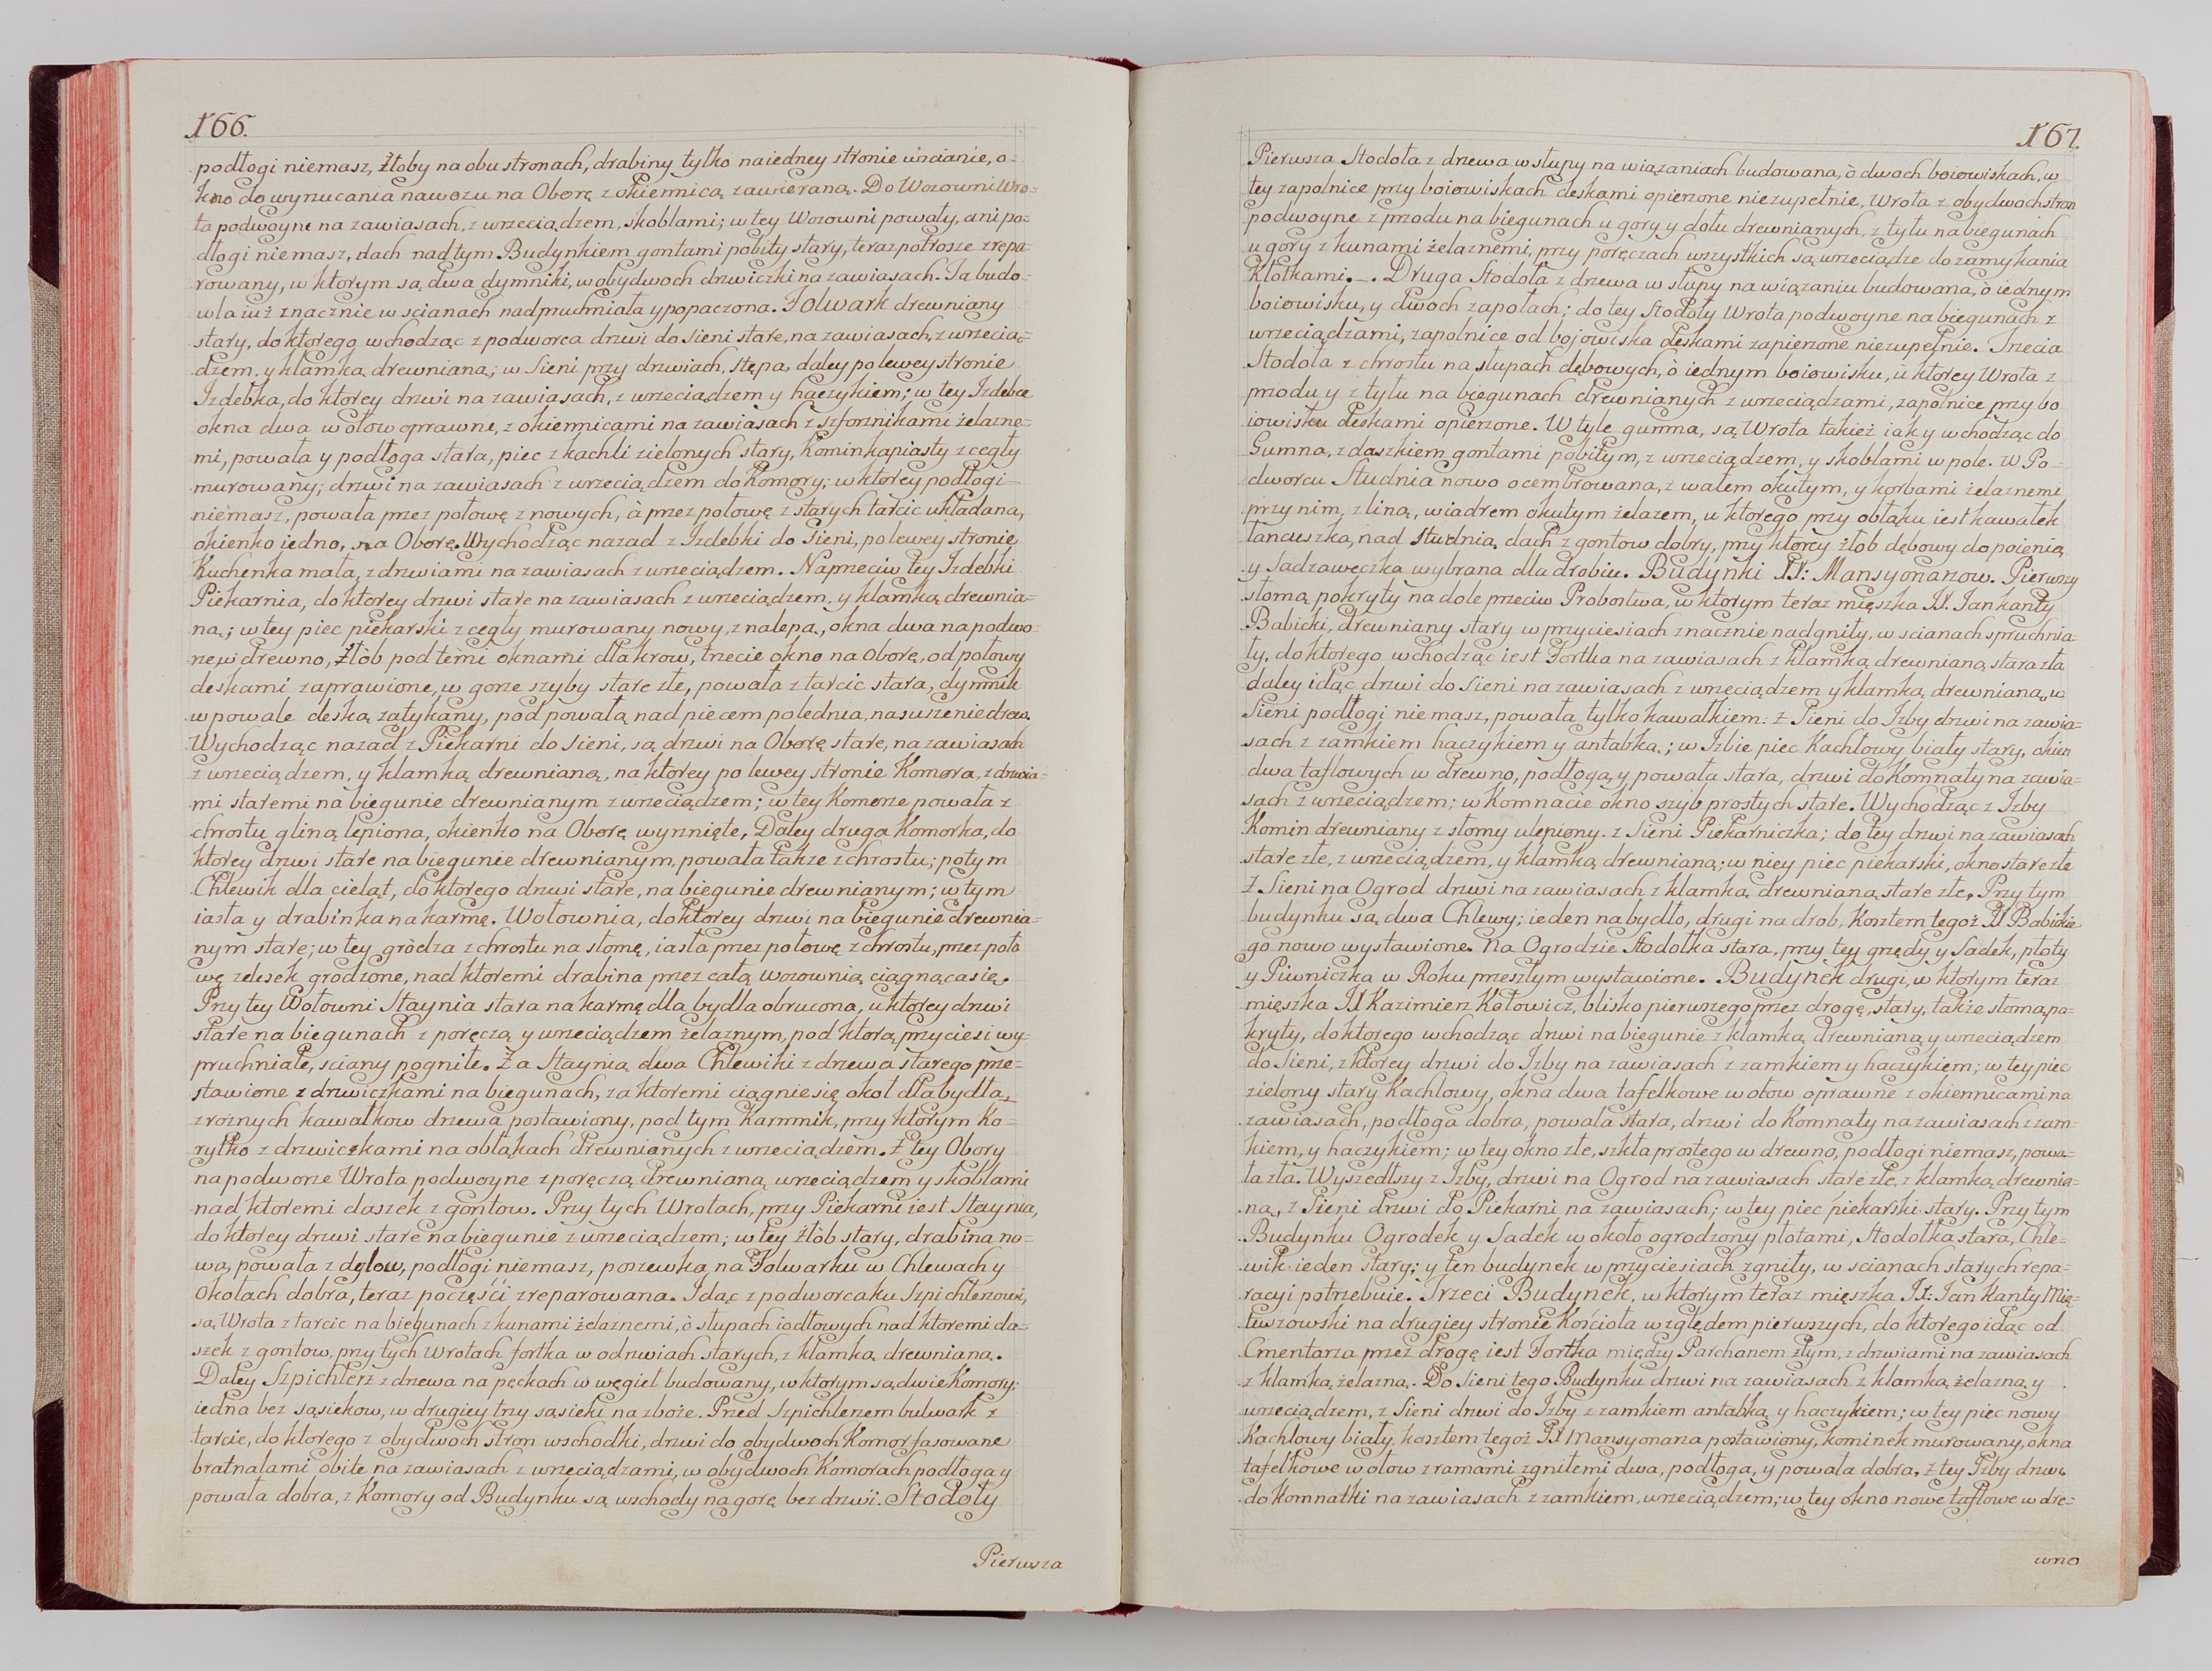 166.
podłogi niemasz, Żłoby na obu stronach, drabiny tylko na iedney stronie wścianie, o-
kno do wyrzucania nawozu na Oborę z okiennicą zawieraną. Do Wozowni Wro=
ta podwoyne na zawiasach, z wrzeciądzem, skoblami; w tey Wozowni powały, ani po=
dłogi niemasz, dach nad tym Budynkiem gontami pobity stary, teraz potrosze zrepa=
rowany, w ktorym są dwa dymniki, w obydwoch drzwiczki na zawiasach. Ta budo=
wla iuż znacznie w scianach nadpruchniała y popaczona. Folwark drewniany
stary, do ktorego wchodząc z podworca drzwi do Sieni stare, na zawiasach, z wrzecią=
dzem, y klamką drewnianą; w Sieni przy drzwiach, Stępa, daley po lewey stronie
Izdebka, do ktorey drzwi na zawiasach, z wrzeciądzem y haczykiem; w tey Izdebce
okna dwa w ołow oprawne, z okiennicami na zawiasach z szfornikami żelazne=
mi, powała y podłoga stara, piec z kachli zielonych stary, Komin kapiasty z cegły
murowany; drzwi na zawiasach z wrzeciądzem do Komory; w ktorey podłogi
niemasz, powała przez połowę z nowych, à przez połowę z starych tarcic układana,
okienko iedno, na Oborę. Wychodząc nazad z Izdebki do Sieni, po lewey stronie
Kuchenka mała, z drzwiami na zawiasach z wrzeciądzem. Naprzeciw tey Izdebki
Piekarnia, do ktorey drzwi stare na zawiasach z wrzeciądzem, y klamką drewnia=
ną; w tey piec piekarski z cegły murowany nowy, z nalepą, okna dwa na podwo=
rze, w drewno, Żłòb pod temi oknami dla krow, trzecie okno na Oborę, od połowy
deskami zaprawione, w gorze szyby stare złe, powała z tarcic stara, dymnik
w powale deską zatykany, pod powałą nad piecem polednia, na suszenie drew.
Wychodząc nazad z Piekarni do Sieni, są drzwi na Oborę stare, na zawiasach
z wrzeciądzem, y klamką drewnianą, na ktorey po lewey stronie Komora, z drzwia=
mi staremi na biegunie drewnianym z wrzeciądzem; w tey Komorze powała z
chrostu gliną lepiona, okienko na Oborę wyrznięte, Daley druga Komorka, do
ktorey drzwi stare na biegunie drewnianym, powała także z chrostu; potym
Chlewik dla cieląt, do ktorego drzwi stare, na biegunie drewnianym; w tym
iasła y drabinka na karmę. Wołownia, do ktorey drzwi na biegunie drewnia=
nym stare; w tey gròdza z chrostu na słomę, iasła przez połowę z chrostu, przez poło
wę zelesek grodzone, nad ktoremi drabina przez całą wozownią ciągnącasię.
Przy tey Wołowni Staynia stara na karmę dla bydła obrucona, u ktorey drzwi
stare na biegunach z poręczą y wrzeciądzem żelaznym, pod ktorą przyciesi wy=
pruchniałe, sciany pogniłe. Za Staynią dwa Chlewiki z drzewa starego prze=
stawione z drzwiczkami na biegunach, za ktoremi ciągnie się okoł dla bydła,
z rożnych kawałkow drzewa postawiony, pod tym Karmnik, przy ktorym Ko=
rytko z drzwiczkami na obłąkach drewnianych z wrzeciądzem. Z tey Obory
na podworze Wrota podwoyne z poręczą drewnianą wrzeciądzem y skoblami
nad ktoremi daszek z gontow. Przy tych Wrotach, przy Piekarni iest Staynia,
do ktorey drzwi stare na biegunie z wrzeciądzem; w tey żłòb stary, drabina no=
wa, powała z dylow, podłogi niemasz, poszewka na Folwarku w Chlewach y
Okołach dobra, teraz poczęści zreparowana. Idąc z podworca ku Szpichlerzowi,
są Wrota z tarcic na biegunach z kunami żelaznemi, ò słupach iodłowych nad ktoremi da=
szek z gontow, przy tych Wrotach fortka w odrzwiach starych, z klamką drewnianą.
Daley Szpichlerz z drzewa na peckach w węgieł budowany, w ktorym są dwie Komory;
iedna bez sąsiekow, w drugiey trzy sąsieki na zboże. Przed Szpichlerzem bulwark z
tarcic, do ktorego z obydwoch stron wschodki, drzwi do obydwoch Komor fasowane
bratnalami obite na zawiasach z wrzeciądzami, w obydwoch Komorach podłoga y
powała dobra, z Komory od Budynku są wschody na gorę bez drzwi. Stodoły
Pierwsza
167.
Pierwsza Stodoła z drzewa w słupy na wiązaniach budowana, ò dwoch boiowiskach, w
tey zapolnice przy boiowiskach deskami opierzone niezupełnie, Wrota z obydwoch stron
podwoyne z przodu na biegunach u gory y dołu drewnianych, z tyłu na biegunach
u gory z kunami żelaznemi, przy poręczach wszystkich są wrzeciądze do zamykania
Kłotkami. _. Druga Stodoła z drzewa w słupy na wiązaniu budowana, ò iednym
boiowisku, y dwoch zapołach; do tey Stodoły Wrota podwoyne na biegunach z
wrzeciądzami, zapolnice od bojowiska deskami zapierzone niezupełnie. Trzecia
Stodoła z chrostu na słupach dębowych, ò iednym boiowisku, u ktorey Wrota z
przodu y z tyłu na biegunach drewnianych z wrzeciądzami, zapolnice przy bo
iowisku deskami opierzone. W tyle gumna, są Wrota takież iak y wchodząc do
Gumna, z daszkiem gontami pobitym, z wrzeciądzem, y skoblami w pole. W Po=
dworcu Studnia nowo ocembrowana, z wałem okutym, y korbami żelaznemi
przy nim, z liną, wiadrem okutym żelazem, u ktorego przy obłąku iest kawałek
łancuszka, nad Studnią dach z gontow dobry, przy ktorey żłob dębowy do poienia
y Sadzaweczka wybrana dla drobiu. Budynki JJ: Mansyonarzow. Pierwszy
słomą pokryty na dole przeciw Probostwa, w ktorym teraz mięszka JX. Jan kanty
Babicki, drewniany stary w przyciesiach znacznie nadgniły, w scianach spruchnia=
ły, do ktorego wchodząc iest Fortka na zawiasach z klamką drewnianą stara zła
daley idąc drzwi do Sieni na zawiasach z wrzeciądzem y klamką drewnianą, w
Sieni podłogi niemasz, powała tylko kawałkiem. Z Sieni do Izby drzwi na zawia=
sach z zamkiem haczykiem y antabką; w Izbie piec Kachlowy biały stary, okien
dwa taflowych w drewno, podłoga, y powała stara, drzwi do Komnaty na zawia=
sach z wrzeciądzem; w Komnacie okno szyb prostych stare. Wychodząc z Izby
Komin drewniany z słomy ulepiony. Z Sieni Piekarniczka; do tey drzwi na zawiasach
stare złe, z wrzeciądzem, y klamką drewnianą; w niey piec piekarski, okno stare złe
Z Sieni na Ogrod drzwi na zawiasach z klamką drewnianą stare złe. Przy tym
budynku są dwa Chlewy; ieden na bydło, drugi na drob, Kosztem tegoż JX Babickie
go nowo wystawione. Na Ogrodzie Stodołka stara, przy tey grzędy y Sadek, płoty
y Piwniczka w Roku przeszłym wystawione. Budynek drugi, w ktorym teraz
mięszka JX Kazimierz Kotowicz, blisko pierwszego przez drogę, stary, także słomą po=
kryty, do ktorego wchodząc drzwi na biegunie z klamką drewnianą y wrzeciądzem
do Sieni, z ktorey drzwi do Izby na zawiasach z zamkiem y haczykiem; w tey piec
zielony stary Kachlowy, okna dwa tafelkowe w ołow oprawne z okiennicami na
zawiasach, podłoga dobra, powała stara, drzwi do Komnaty na zawiasach z zam=
kiem, y haczykiem; w tey okno złe, szkła prostego w drewno, podłogi niemasz, powa=
ła zła. Wyszedłszy z Izby, drzwi na Ogrod na zawiasach stare złe, z klamką drewnia=
ną, z Sieni drzwi do Piekarni na zawiasach; w tey piec piekarski stary. Przy tym
Budynku Ogrodek y Sadek w około ogrodzony płotami, Stodołka stara, Chle=
wik ieden stary; y ten budynek w przyciesiach zgniły, w scianach starych repa=
racyi potrzebuie. Trzeci Budynek, w ktorym teraz mięszka JX: Jan Kanty Mią=
tuszowski na drugiey stronie Kościoła względem pierwszych, do ktorego idąc od
Cmentarza przez drogę iest Fortka między Parchanem złym, z drzwiami na zawiasach
z klamką żelazną. Do Sieni tego Budynku drzwi na zawiasach z klamką żelazną y
wrzeciądzem, z Sieni drzwi do Izby z zamkiem antabką y haczykiem; w tey piec nowy
Kachlowy biały, kosztem tegoż JX Mansyonarza postawiony, kominek murowany, okna
tafelkowe w ołow z ramami zgniłemi dwa, podłoga, y powała dobra. Z tey Izby drzwi
do Komnatki na zawiasach z zamkiem, wrzeciądzem; w tey okno nowe taflowe w dre=
wno